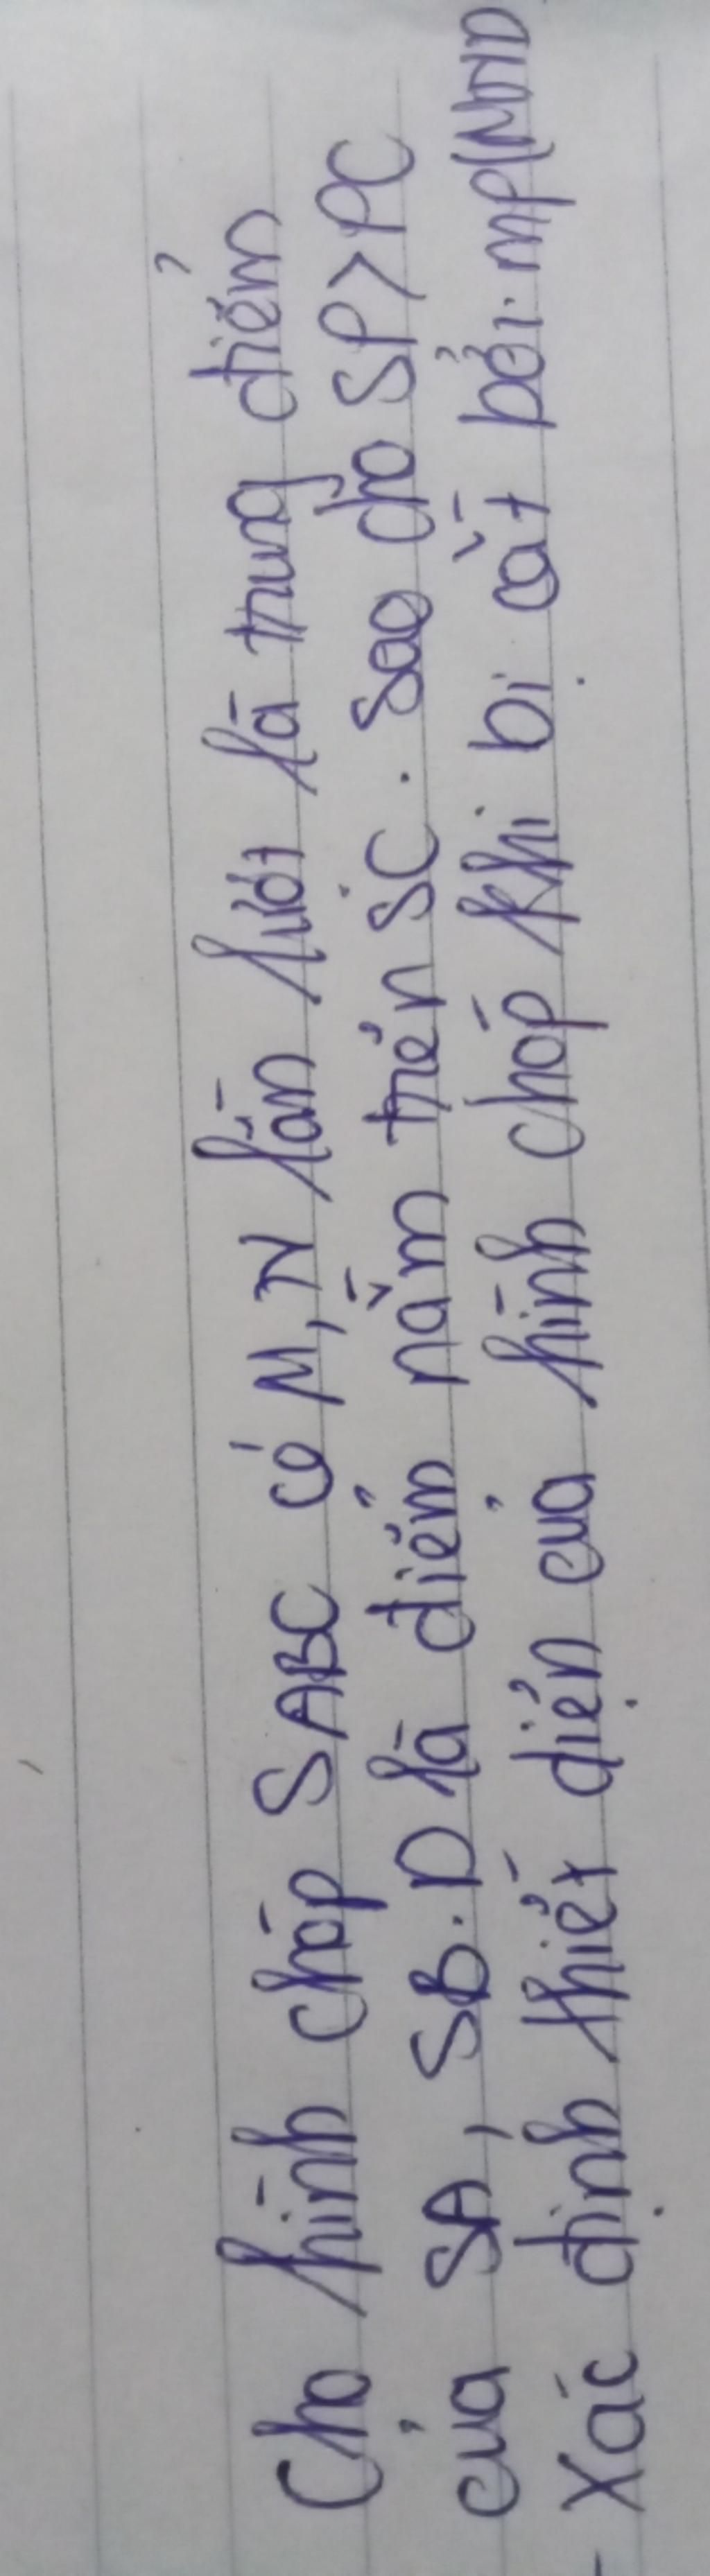 Cho hình chóp SABC có M, N lần lượt là trung điểm
của SA, SB. P là điểm nằm trên SC. Sao cho SP > PC
- Xác định thiết diện của hình chóp khi bị cắt bởi mp(MNP)